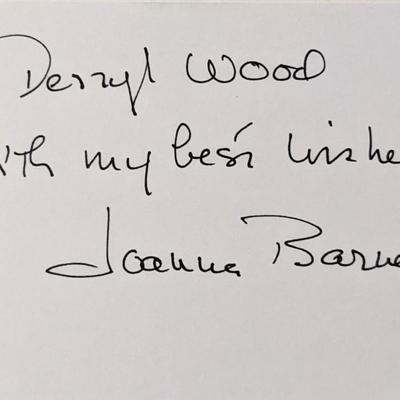 Derryl Wood
ith my best wishe
Joanna Barne